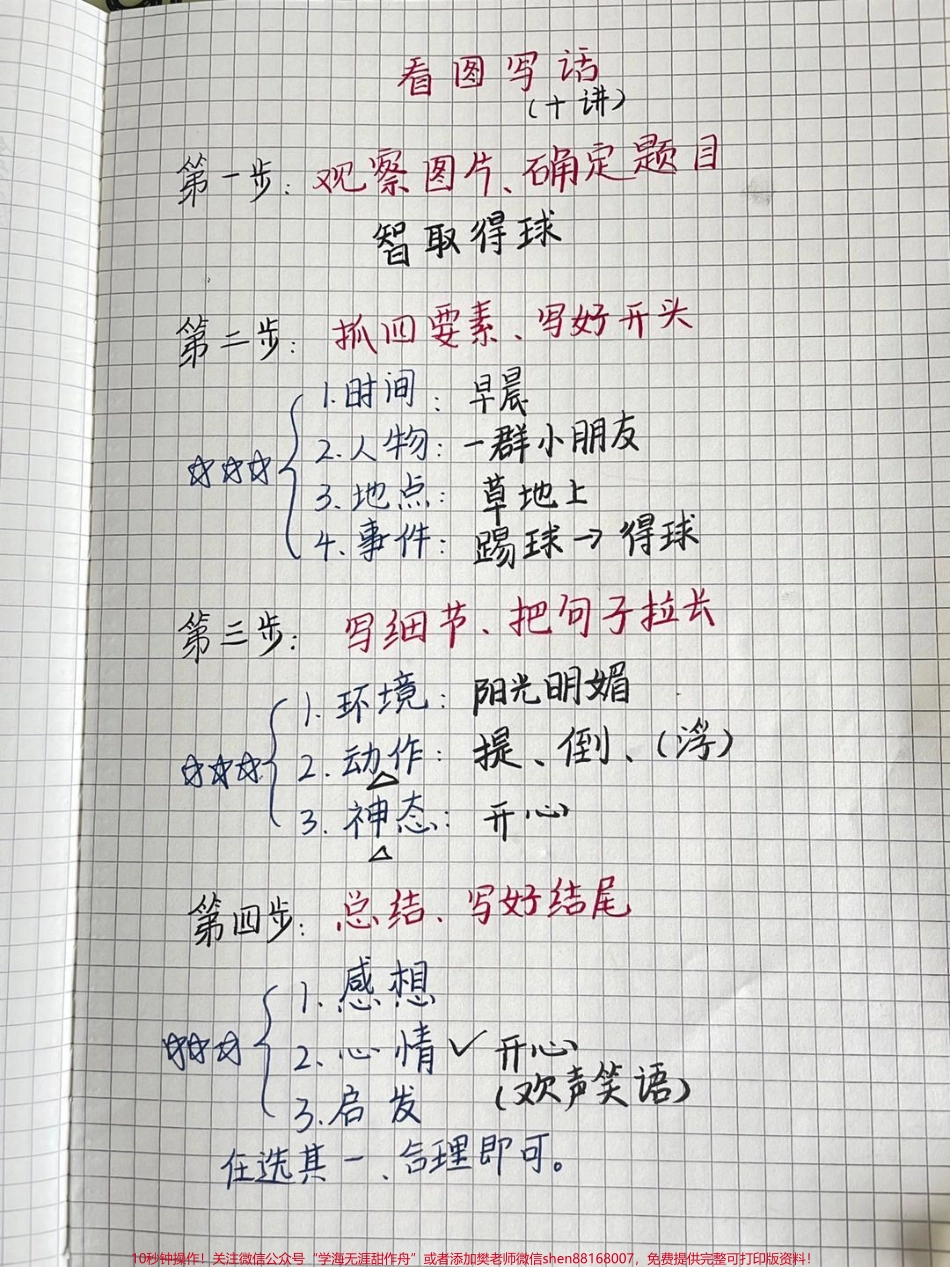 看图写话
(十讲)
第一步：观察图片、确定题目
智取得球
第二步：抓四要素、写好开头
☆☆☆
1.时间：早晨
2.人物：一群小朋友
3.地点：草地上
4.事件：踢球→得球
第三步：写细节、把句子拉长
☆☆☆
1.环境：阳光明媚
2.动作：提、倒、(浮)
3.神态：开心
第四步：总结、写好结尾
☆☆☆
1.感想
2.心情✓ 开心
(欢声笑语)
3.启发
任选其一、合理即可。
10秒钟操作！关注微信公众号“学海无涯甜作舟”或者添加樊老师微信shen88168007，免费提供完整可打印版资料！